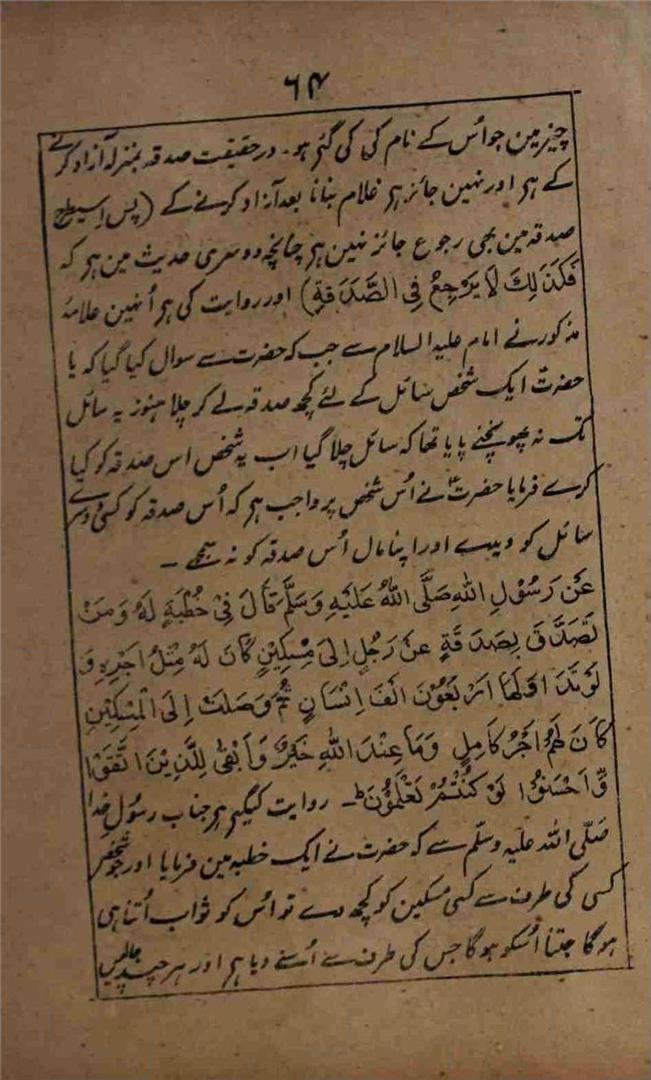 ۶۴
چیز مین جو اُس کے نام کی کی گئی ہو۔ درحقیقت صدقہ بمنزلہ آزاد کرنے
کے ہے اور نہین جائز ہے غلام بنانا بعد آزاد کرنے کے (پس اِسیطرح
صدقہ مین بھی رجوع جائز نہین ہے چنانچہ دوسری حدیث مین ہے کہ
فَکَذٰلِكَ لَا یَرْجِعُ فِی الصَّدَقَةِ) اور روایت کی ہے اُنہین علامۂ
مذکور نے امام علیہ السلام سے جب کہ حضرت سے سوال کیا گیا کہ یا
حضرتؑ ایک شخص سائل کے لئے کچھ صدقہ لے کر چلا ہنوز یہ سائل
تک نہ پھونچنے پایا تھا کہ سائل چلا گیا اب یہ شخص اس صدقہ کو کیا
کرے فرمایا حضرتؑ نے اُس شخص پر واجب ہے کہ اُس صدقہ کو کسی دوسرے
سائل کو دیدے اور اپنا مال اُس صدقہ کو نہ سمجھے ۔
عَنْ رَسُوْلِ اللهِ صَلَّى اللهُ عَلَيْهِ وَسَلَّمَ قَالَ فِيْ خُطْبَةٍ لَهُ وَمَنْ
تَصَدَّقَ بِصَدَقَةٍ عَنْ رَجُلٍ اِلىٰ مِسْكِيْنٍ كَانَ لَهُ مِثْلُ اَجْرِهِ وَ
لَوْ تَدَاوَلَهَا اَرْبَعُوْنَ اَلْفَ اِنْسَانٍ ثُمَّ وَصَلَتْ اِلَى الْمِسْكِيْنِ
كَانَ لَهُمْ اَجْرٌ كَامِلٍ وَمَا عِنْدَ اللهِ خَيْرٌ وَّاَبْقٰى لِلَّذِيْنَ اتَّقَوْا
وَّاَحْسَنُوْا لَوْ كُنْتُمْ تَعْلَمُوْنَ ط۔ روایت کیگئی ہے جناب رسُولِ خدا
صَلّی اللہ علیہ وسلّم سے کہ حضرت نے ایک خطبہ مین فرمایا اور جو شخص
کسی کی طرف سے کسی مسکین کو کچھ دے تو اُس کو ثواب اُتنا ہی
ہوگا جتنا اُسکو ہوگا جس کی طرف سے اُسنے دیا ہے اور ہر چند چالیس